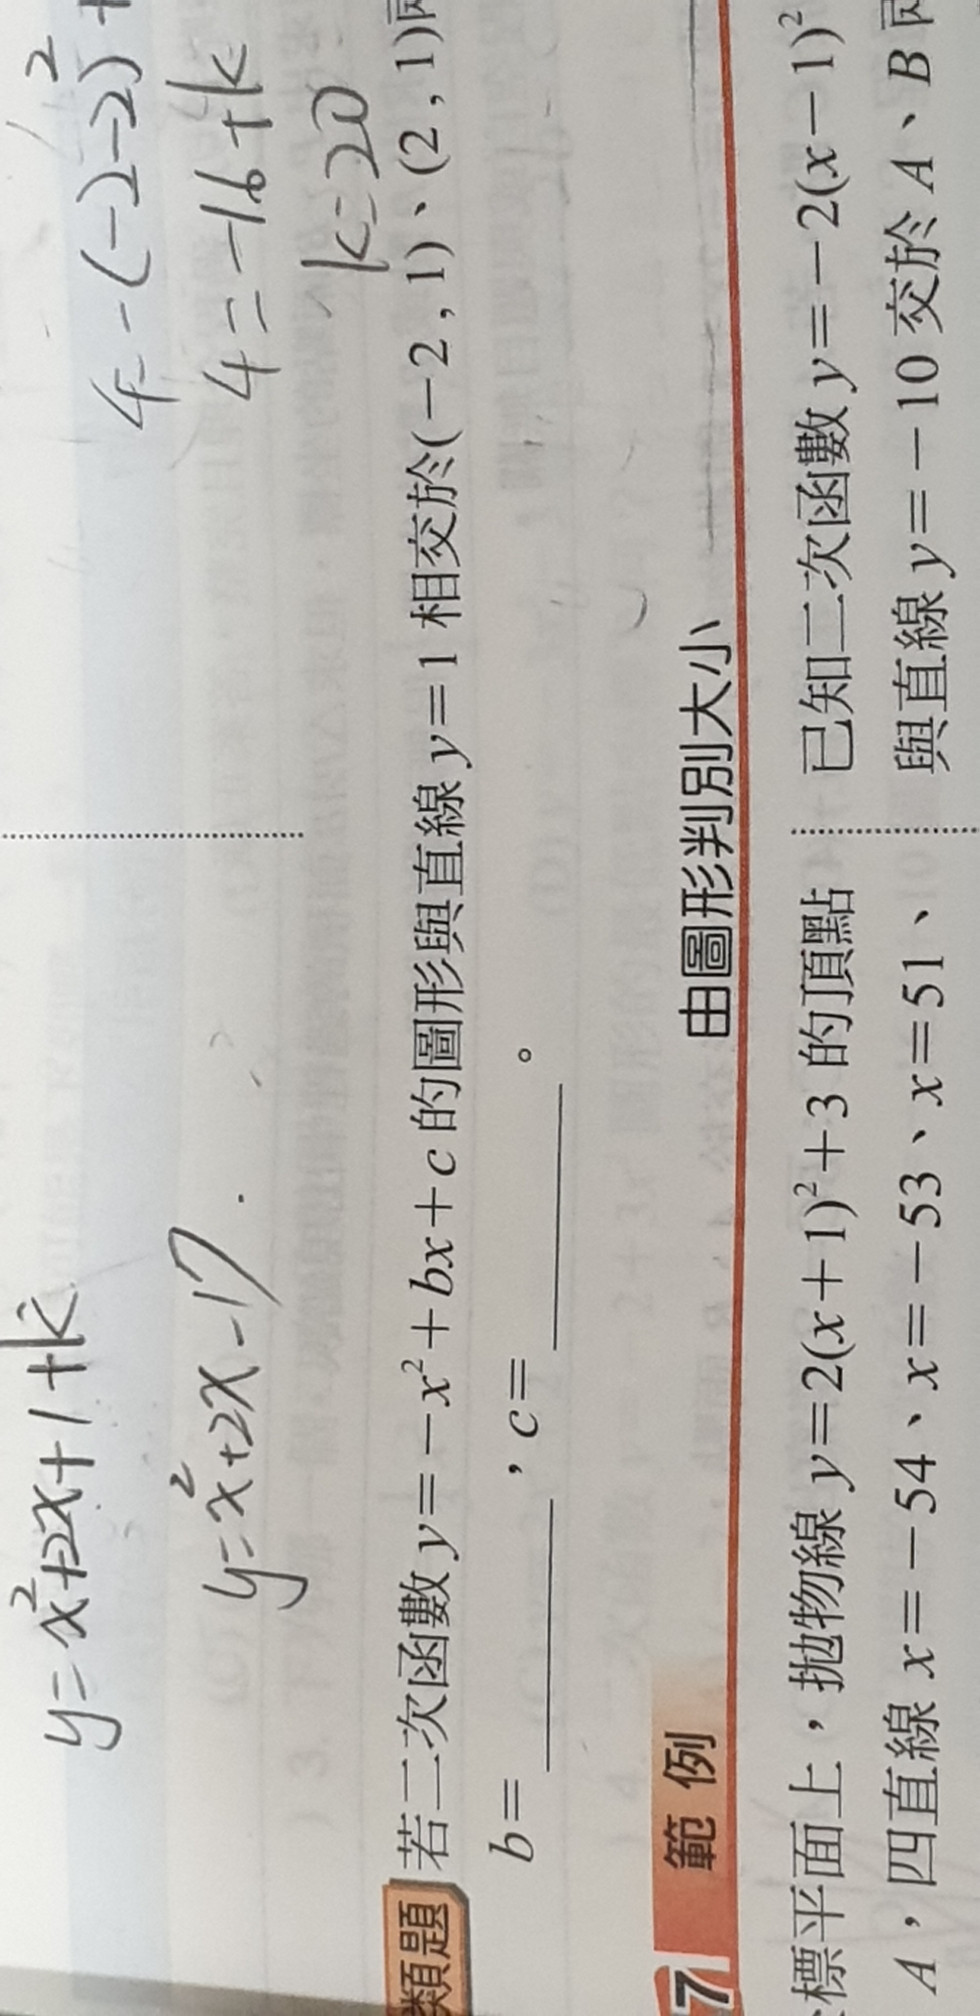 y=x²+2x+1+k
4=-(-2-2)²+
y=x²+2x-17
4=-16+k
k=20
類題 若二次函數 y=-x²+bx+c 的圖形與直線 y=1 相交於(-2,1)、(2,1)
b=________,c=________。
7 範例 由圖形判別大小
標平面上,拋物線 y=2(x+1)²+3 的頂點
A,四直線 x=-54、x=-53、x=51、
已知二次函數 y=-2(x-1)²
與直線 y=-10 交於 A、B